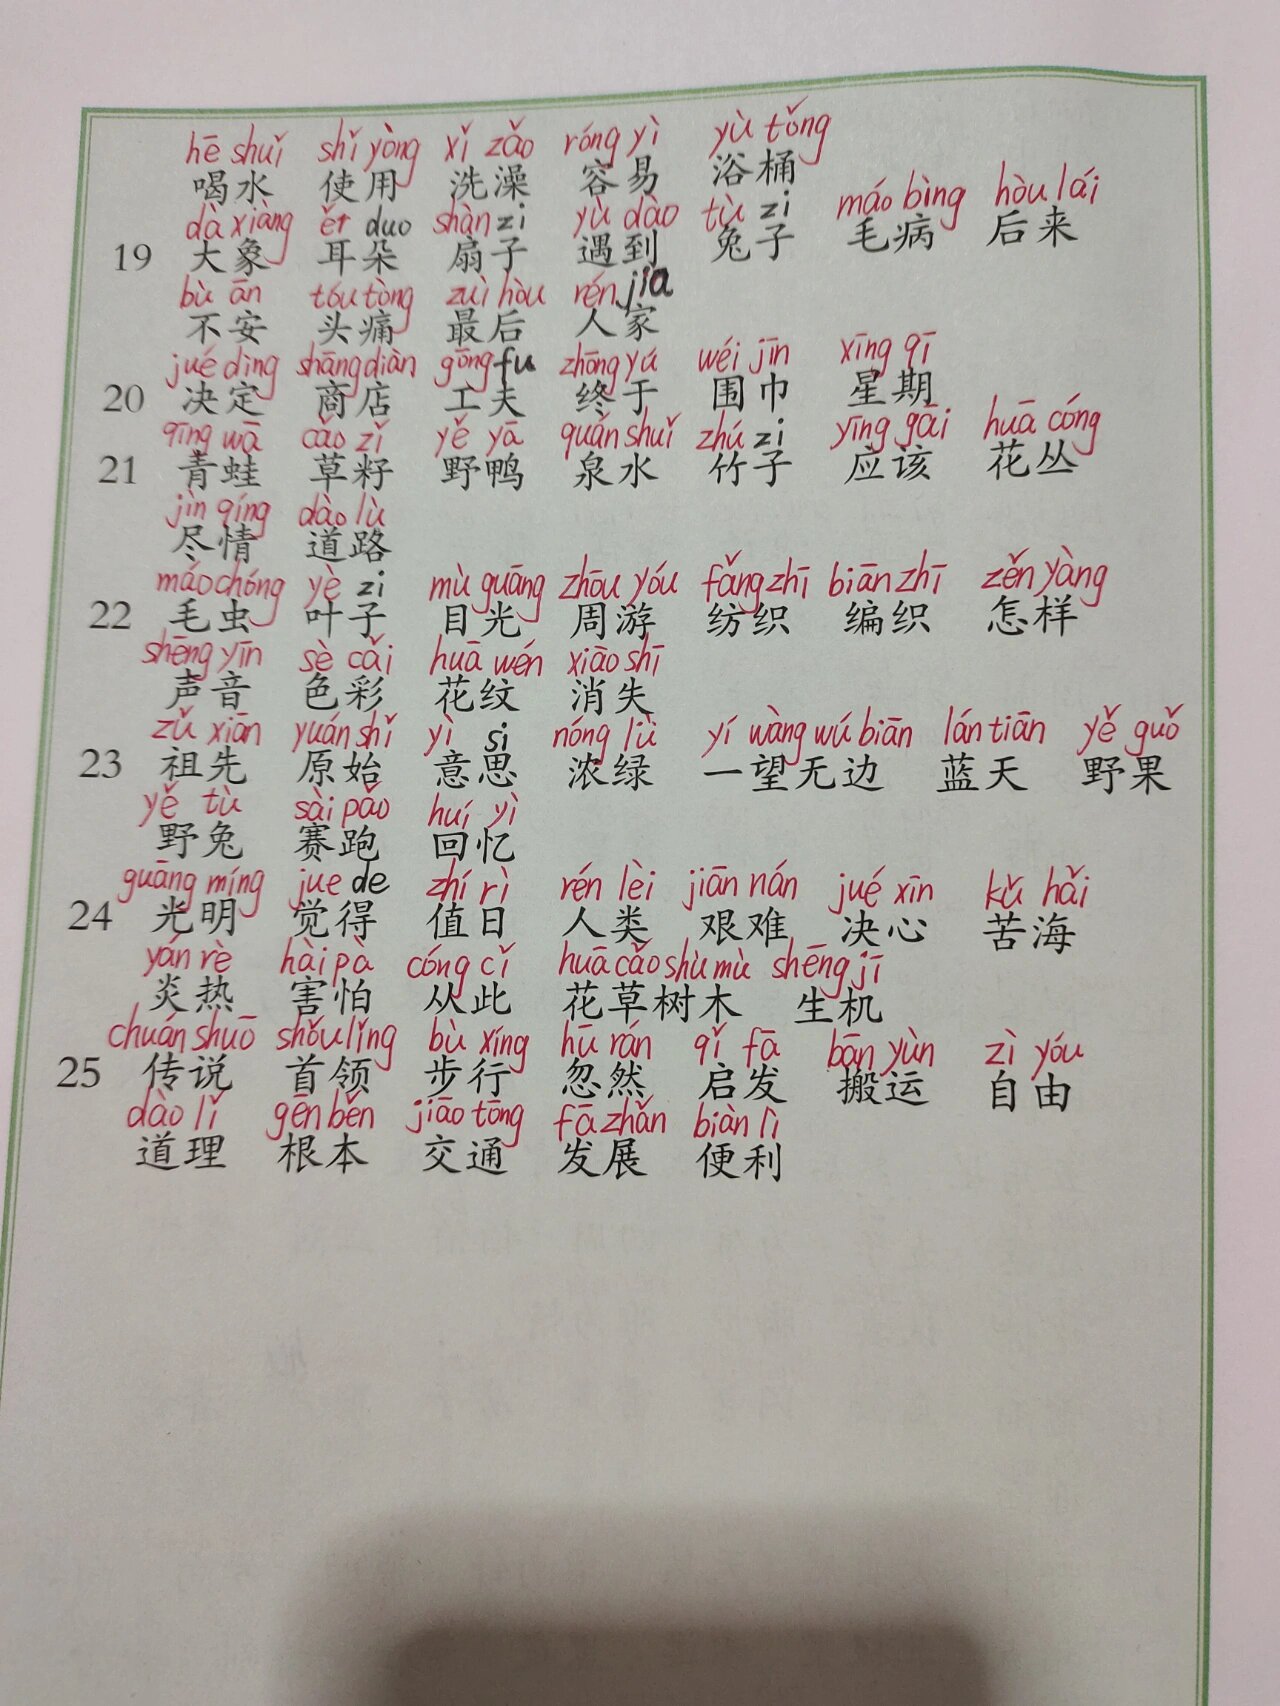 hē shuǐ shǐ yòng xǐ zǎo róng yì yù tǒng
喝水 使用 洗澡 容易 浴桶
dà xiàng ěr duo shàn zi yù dào tù zi máo bìng hòu lái
19 大象 耳朵 扇子 遇到 兔子 毛病 后来
bù ān tóu tòng zuì hòu rén jia
不安 头痛 最后 人家
jué dìng shāng diàn gōng fu zhōng yú wéi jīn xīng qī
20 决定 商店 工夫 终于 围巾 星期
qīng wā cǎo zǐ yě yā quán shuǐ zhú zi yīng gāi huā cóng
21 青蛙 草籽 野鸭 泉水 竹子 应该 花丛
jìn qíng dào lù
尽情 道路
máo chóng yè zi mù guāng zhōu yóu fǎng zhī biān zhī zěn yàng
22 毛虫 叶子 目光 周游 纺织 编织 怎样
shēng yīn sè cǎi huā wén xiāo shī
声音 色彩 花纹 消失
zǔ xiān yuán shǐ yì si nóng lǜ yí wàng wú biān lán tiān yě guǒ
23 祖先 原始 意思 浓绿 一望无边 蓝天 野果
yě tù sài pǎo huí yì
野兔 赛跑 回忆
guāng míng jue de zhí rì rén lèi jiān nán jué xīn kǔ hǎi
24 光明 觉得 值日 人类 艰难 决心 苦海
yán rè hài pà cóng cǐ huā cǎo shù mù shēng jī
炎热 害怕 从此 花草树木 生机
chuán shuō shǒu lǐng bù xíng hū rán qǐ fā bān yùn zì yóu
25 传说 首领 步行 忽然 启发 搬运 自由
dào lǐ gēn běn jiāo tōng fā zhǎn biàn lì
道理 根本 交通 发展 便利